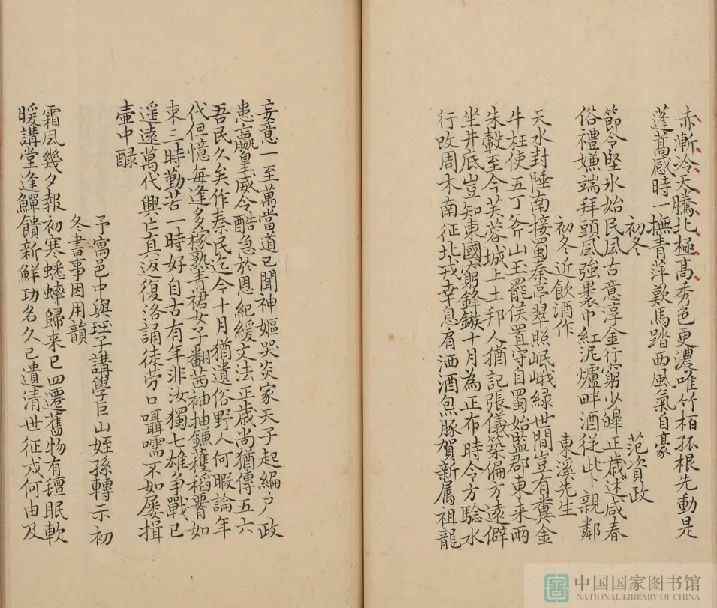 赤漸泠天騰北極高秀色更濃唯竹栢孤根先動是
蓬蒿感時一撫青萍歎馬踏西風氣自豪
初冬 范資政
節令堅氷始民風古意淳金行窮少皞正歲迷咸春
俗禮嫌端拜頭風強裹巾紅泥爐畔酒從此卜親鄰
初冬近飲酒作 東溪先生
天水封陲南接蜀秦亭翠照岷峨緑世間豈有糞金
牛枉使五丁斧山玉罷侯置守自蜀始監郡東来兩
朱轂至今芙蓉城上土邦人猶記張儀築偏方遠僻
坐井底豈知東國窮鋒鏃十月為正布時令方驗水
行改周木南征北戎幸息更有洒酒魚豚賀新属祖龍
妄意一至萬當道已聞神嫗哭炎家天子起編户政
患嬴皇威令酷急於恩紀緩文法正歲尚猶傳五六
吾民久矣作秦民迄今十月猶遺俗野人何暇論年
代但憶每逢多稼熟青裙女子茜袖抽鐮穫稻響如
束三時勤苦一時好自古有年非汝獨七雄争戰已
遥遠萬代興亡真返復洛誦徒勞口囁嚅不如屡揖
壺中醁
予寓邑中與珏子講學巨山姪孫轉示初
冬書事因用韻
霜風幾夕報初寒蟋蟀歸来已四遷舊物有氊眠軟
暖講堂逢鱣饋新鮮功名久已遺清世征戍何由及
中国国家图书馆
NATIONAL LIBRARY OF CHINA